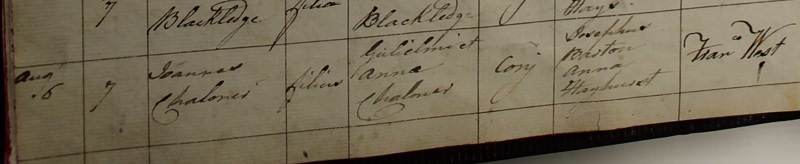 7 Blackledge filia Blackledge Hays.
Aug 6 7 Joannes Chaloner filius Gulielmi et Anna Chaloner Conj Josephus Barton Anna Hayhurst Franco West